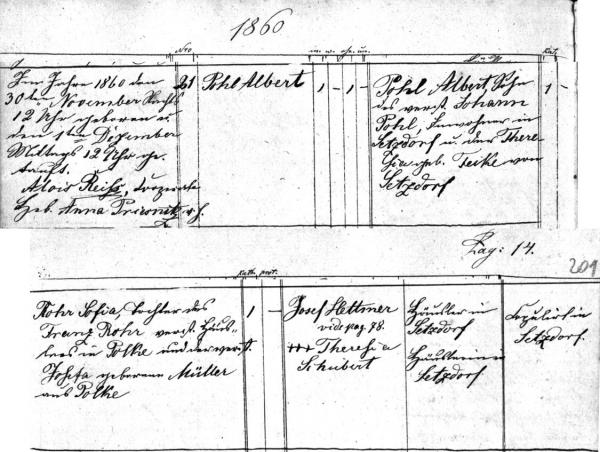 1860
Nro
m. w. ehe. un.
Kath.
Im Jahre 1860 den
30ten November Nachts
12 Uhr geboren u.
den 1ten Dezember
Mittags 12 Uhr ge-
tauft.
Alois Reiss,
Heb. Anna
21
Pohl Albert
1 - 1 -
Pohl Albert, Sohn
des verst. Johann
Pohl, Inwohner in
Setzdorf u. der There-
sia geb. Feike von
Setzdorf
1 -
Pag: 14.
201
Kath. prot.
Rohr Sofia, Tochter des
Franz Rohr verst. Häus-
lers in Polke und der verst.
Josefa geborene Müller
aus Polke
1 -
Josef Hettmer
vide pag. 78.
+++ Theresia
Schubert
Häusler in
Setzdorf
Häuslerin in
Setzdorf
Copulirt in
Setzdorf.